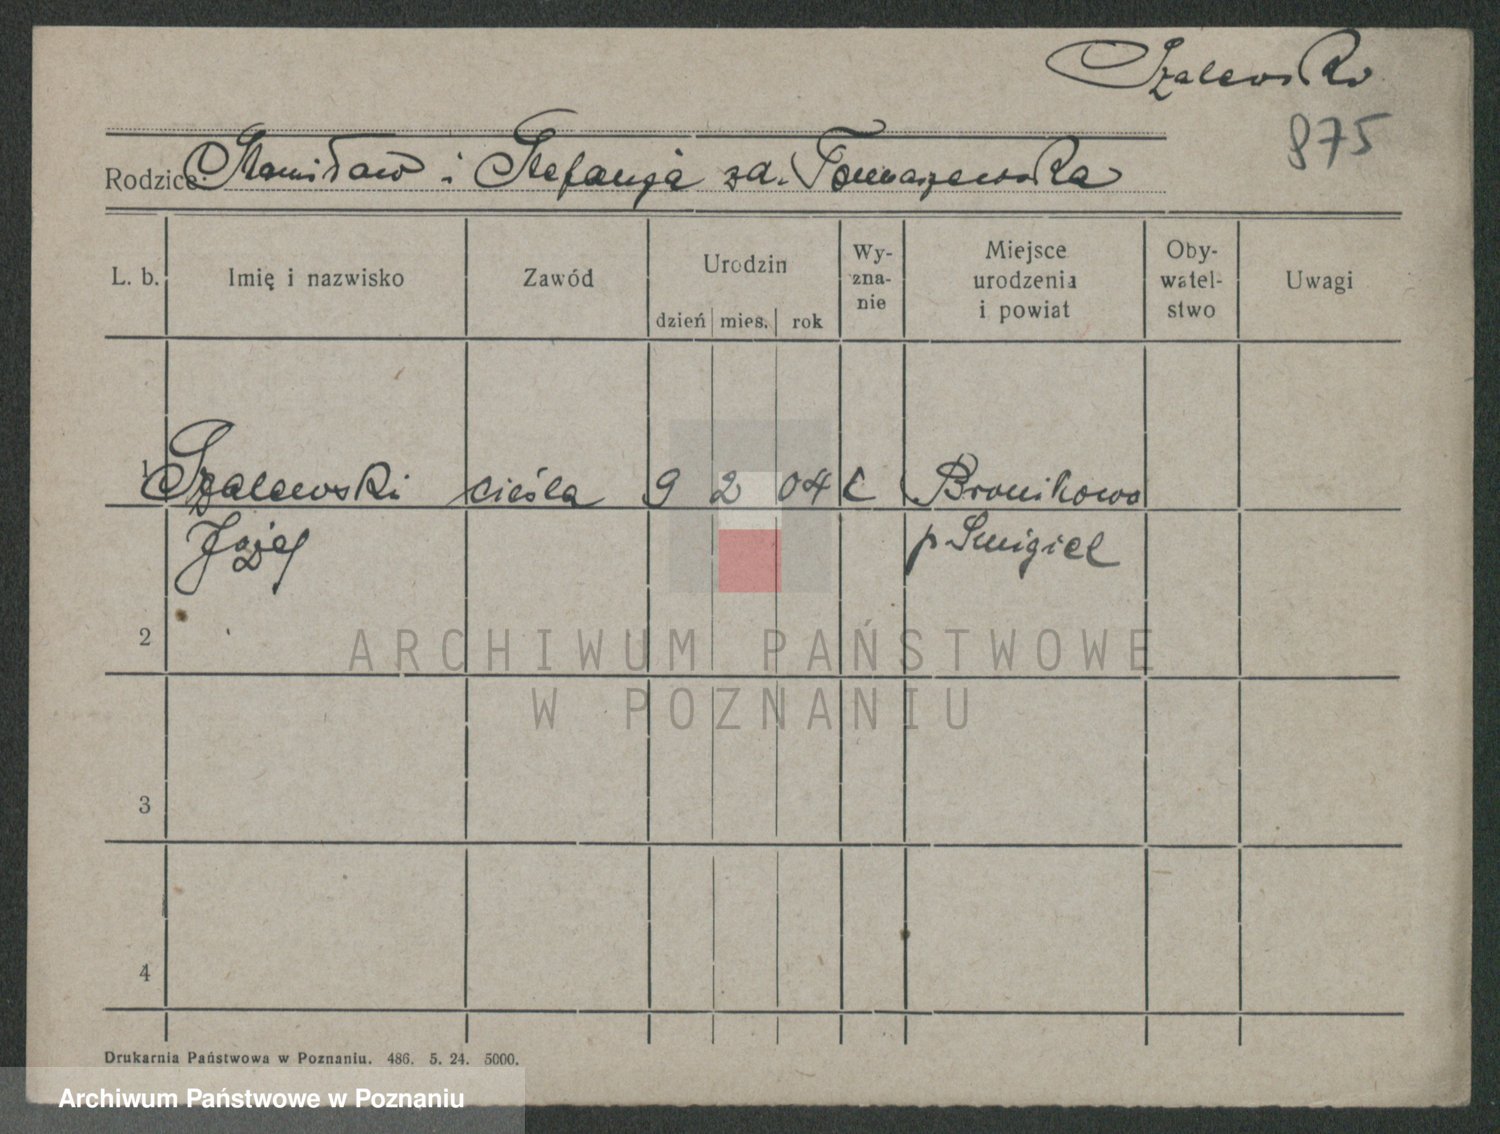 Szalewski
875
Rodzice: Stanisław i Stefanja zd. Tomaszewska
L. b.
Imię i nazwisko
Zawód
Urodzin
dzień mies. rok
Wy-
zna-
nie
Miejsce
urodzenia
i powiat
Oby-
watel-
stwo
Uwagi
1 Szalewski cieśla 9 2 04 k Bronikowo
Józef p Smigiel
2
3
4
ARCHIWUM PAŃSTWOWE
W POZNANIU
Drukarnia Państwowa w Poznaniu. 486. 5. 24. 5000.
Archiwum Państwowe w Poznaniu